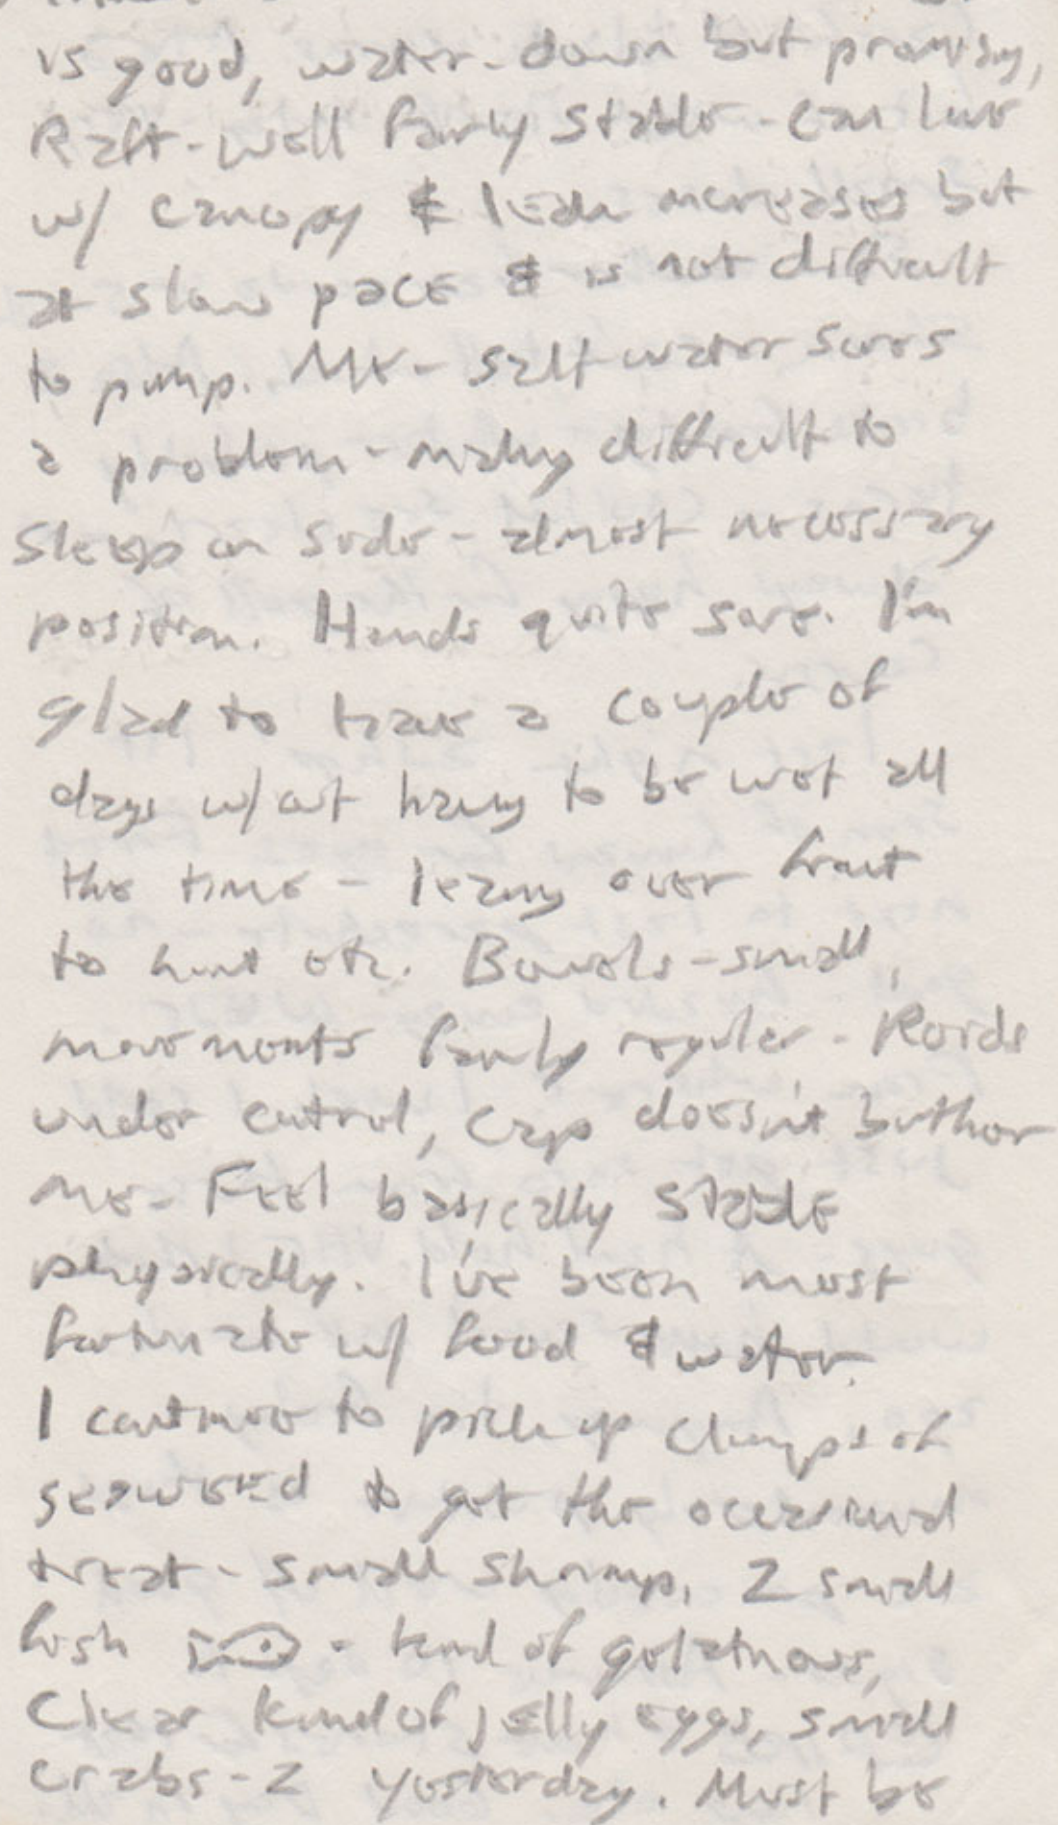 is good, water-down but promising,
Raft-well fairly stable - can live
w/ canopy & leak increases but
at slow pace & is not difficult
to pump. Me - salt water sores
a problem - making difficult to
sleep on side - almost necessary
position. Hands quite sore. I'm
glad to have a couple of
days w/out having to be wet all
the time - leaning over front
to hunt etc. Bowels - small,
movements fairly regular - Roids
under control, crap doesn't bother
me - Feel basically stable
physically. I've been most
fortunate w/ food & water.
I continue to pick up clumps of
seaweed to get the occasional
treat - small shrimp, 2 small
fish - kind of gelatinous,
Clear kind of jelly eggs, small
crabs - 2 yesterday. Must be